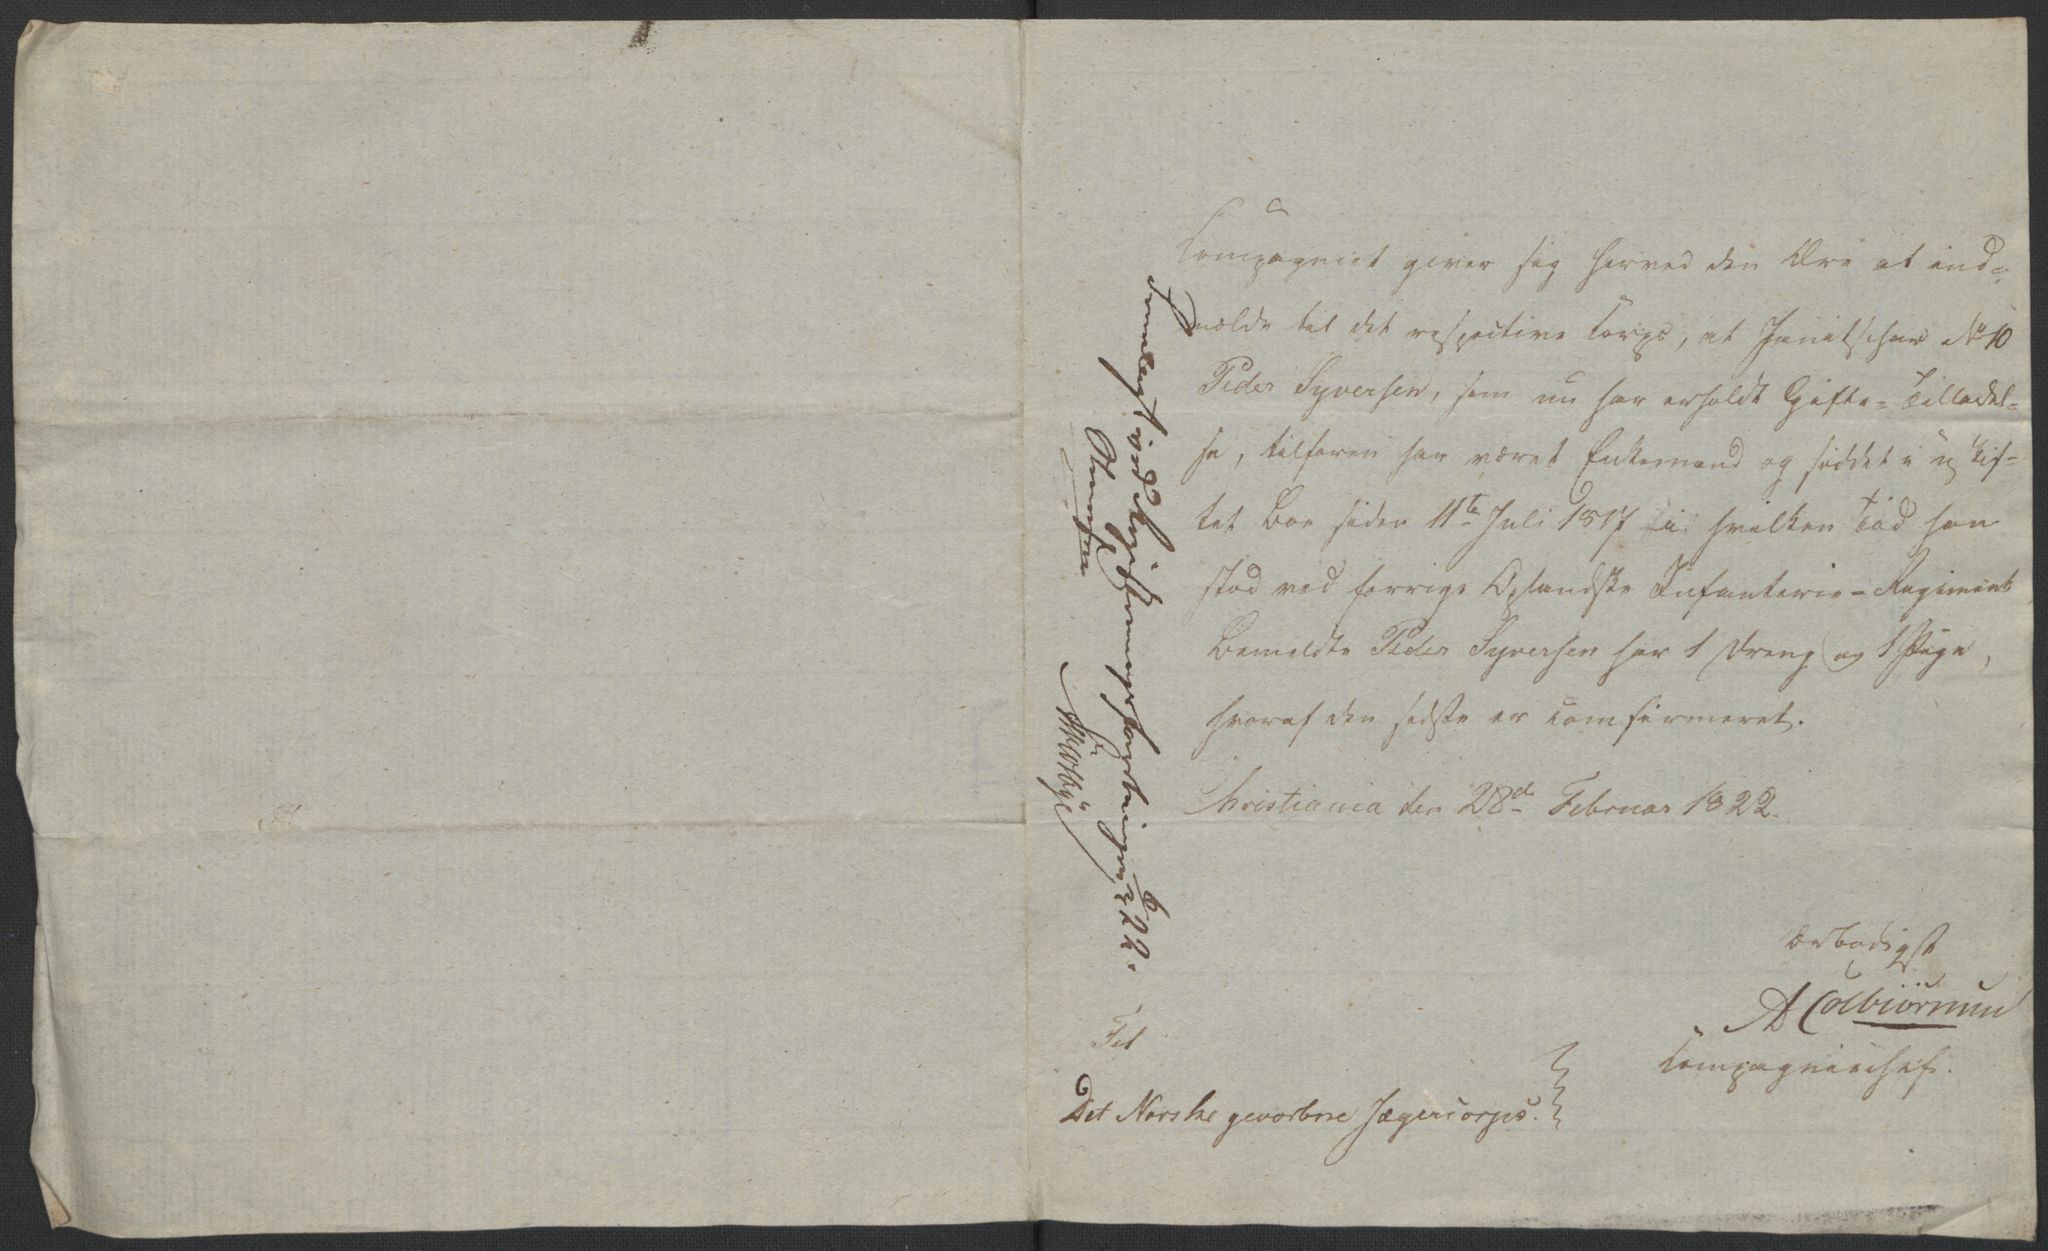 Compagniet giver sig herved den Ære at ind=
melde til det respective Corps, at Janitschar No 10
Peder Syversen, som nu har erholdt Gifte-Tilladel-
se, tilforen har været Enkemand og siddet i uskif-
tet Boe siden 11te Juli 1817 i hvilken Tid han
stod ved forrige Oplandske Infanterie-Regiment
Bemeldte Peder Syversen har 1 Dreng og 1 Pige,
hvoraf den sidste er Confirmeret.
Christiania den 28d Februar 1822.
Ærbødigst
A Colbiörnsen
Compagniechef.
Til
Det Norske gevorbne Jægercorps.
Fremlagt ved Skiftesamlingen